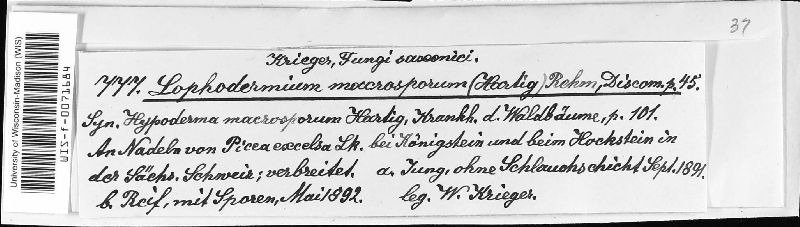 37
University of Wisconsin-Madison (WIS)
WIS-f-0071684
Krieger, Fungi saxonici.
777. Lophodermium macrosporum (Hartig) Rehm, Discom. p. 45.
Syn. Hypoderma macrosporum Hartig, Krankh. d. Waldbäume, p. 101.
An Nadeln von Picea excelsa Lk. bei Königstein und beim Hockstein in
der Sächs. Schweiz; verbreitet. a. Jung, ohne Schlauchschicht Sept. 1891.
b. Reif, mit Sporen, Mai 1892. leg. W. Krieger.